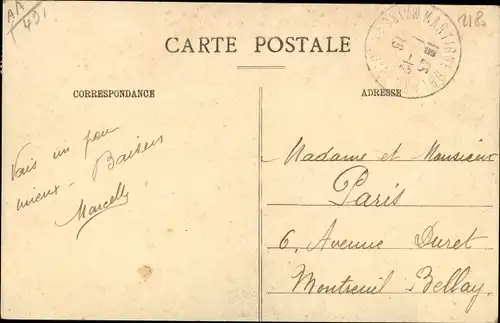 AA
491
2180
CARTE POSTALE
CORRESPONDANCE
ADRESSE
Vais un peu
mieux - Baisers
Marcelle
Madame et Monsieur
Paris
6, Avenue Duret
Montreuil Bellay.